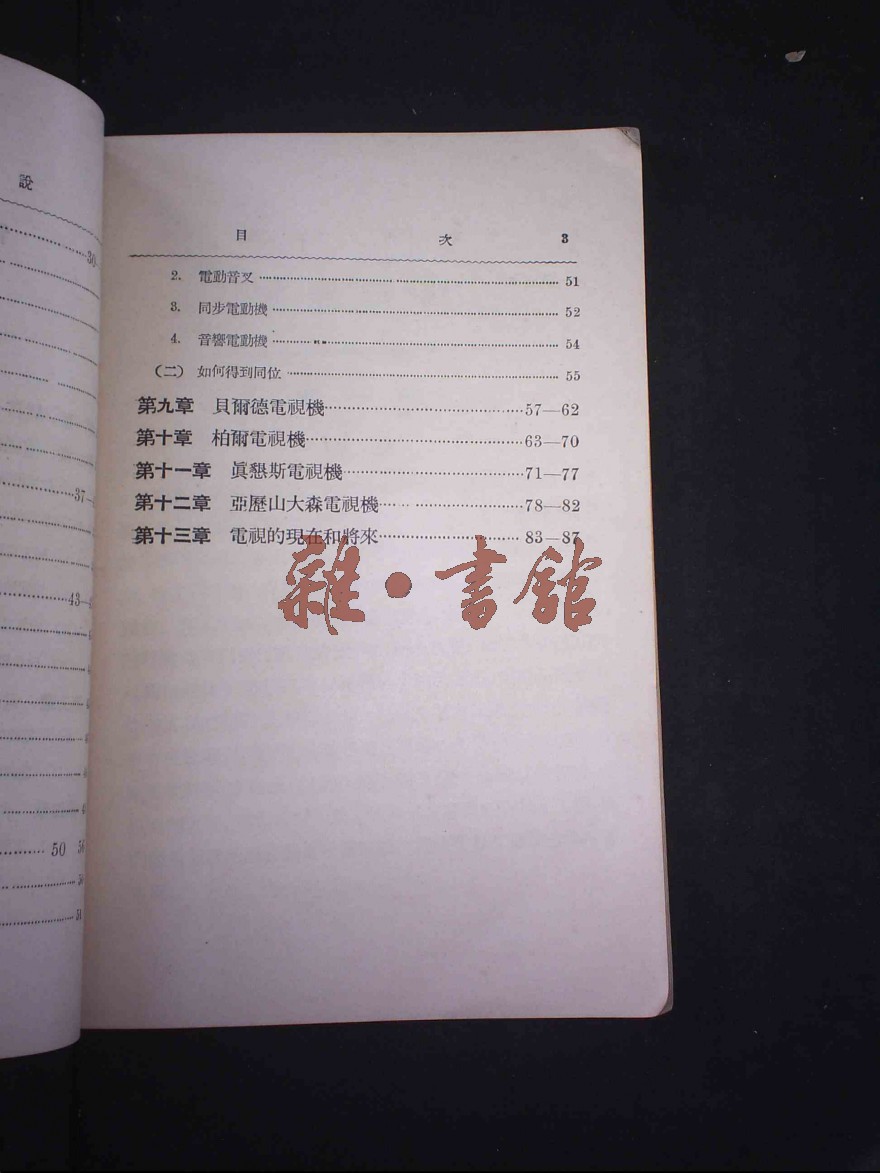 設
30
37
43
50
51
目 次 3
2. 電動音叉 51
3. 同步電動機 52
4. 音響電動機 54
(二) 如何得到同位 55
第九章 貝爾德電視機 57—62
第十章 柏爾電視機 63—70
第十一章 眞懇斯電視機 71—77
第十二章 亞歷山大森電視機 78—82
第十三章 電視的現在和將來 83—87
雜•書館